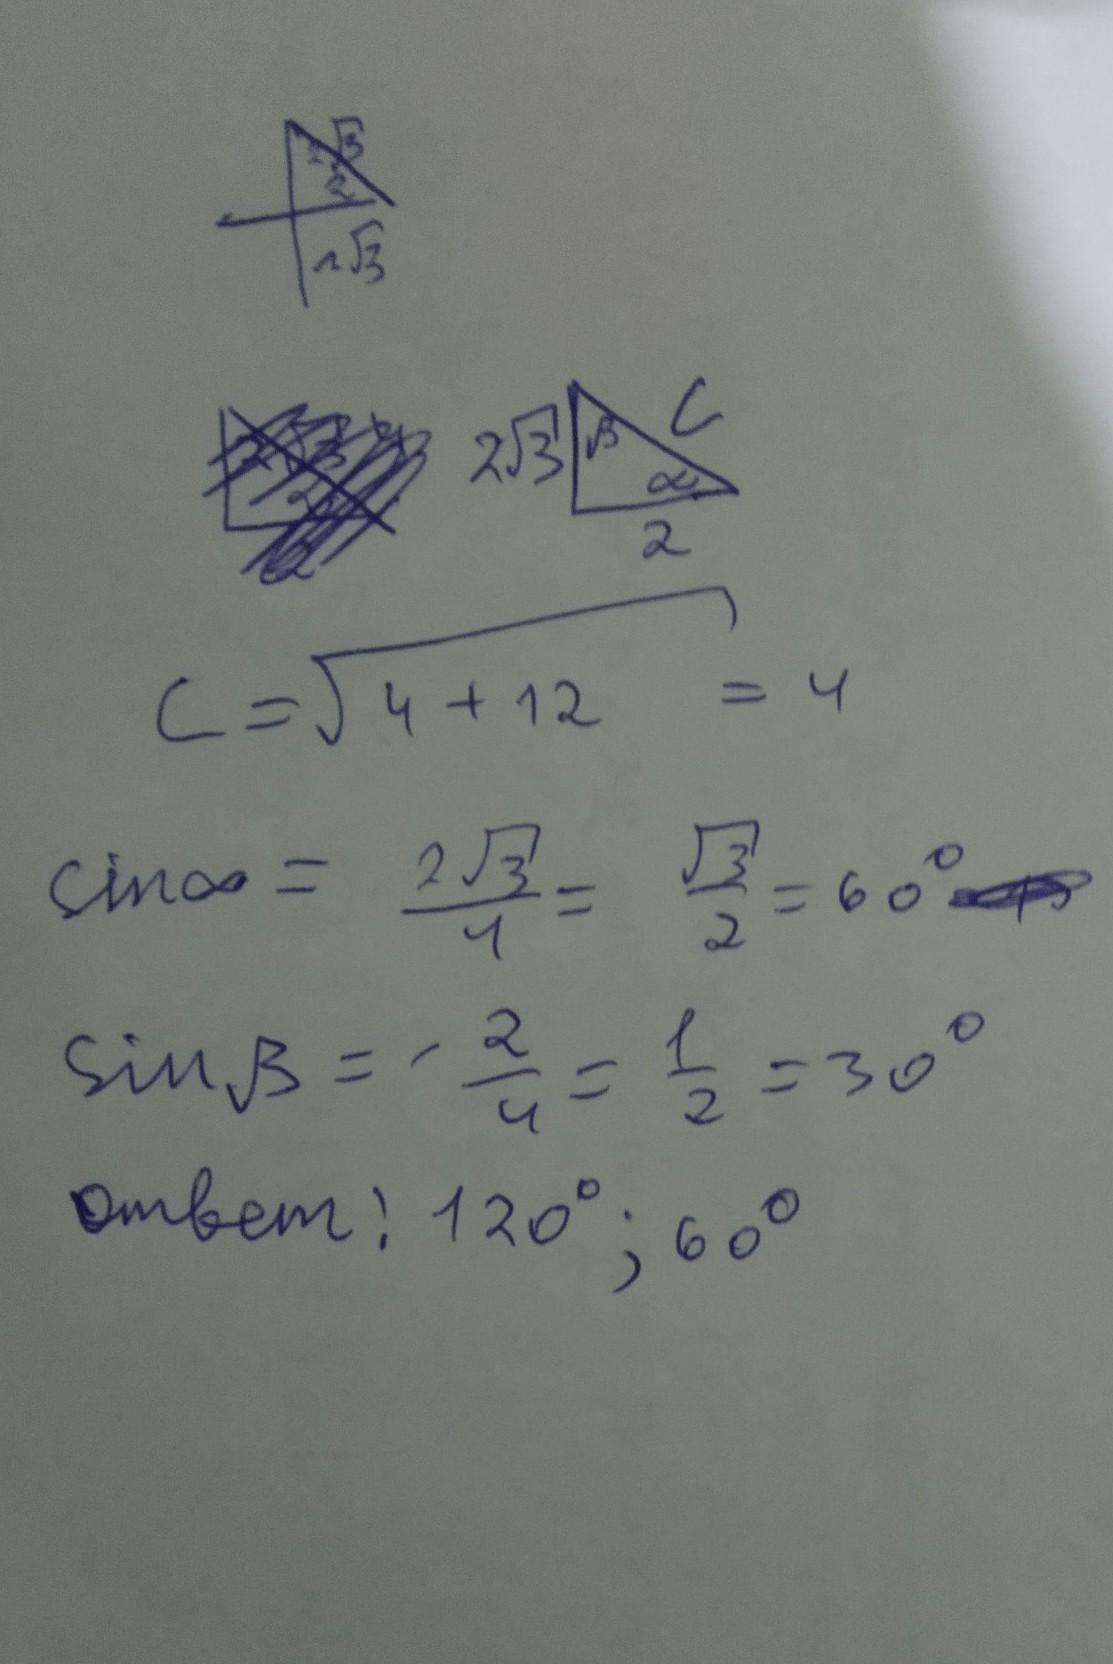 √3
2
1√3
2√3 β C
α
2
C = √4 + 12 = 4
sinα = 2√3/4 = √3/2 = 60°
sinβ = - 2/4 = 1/2 = 30°
Ответ: 120°; 60°